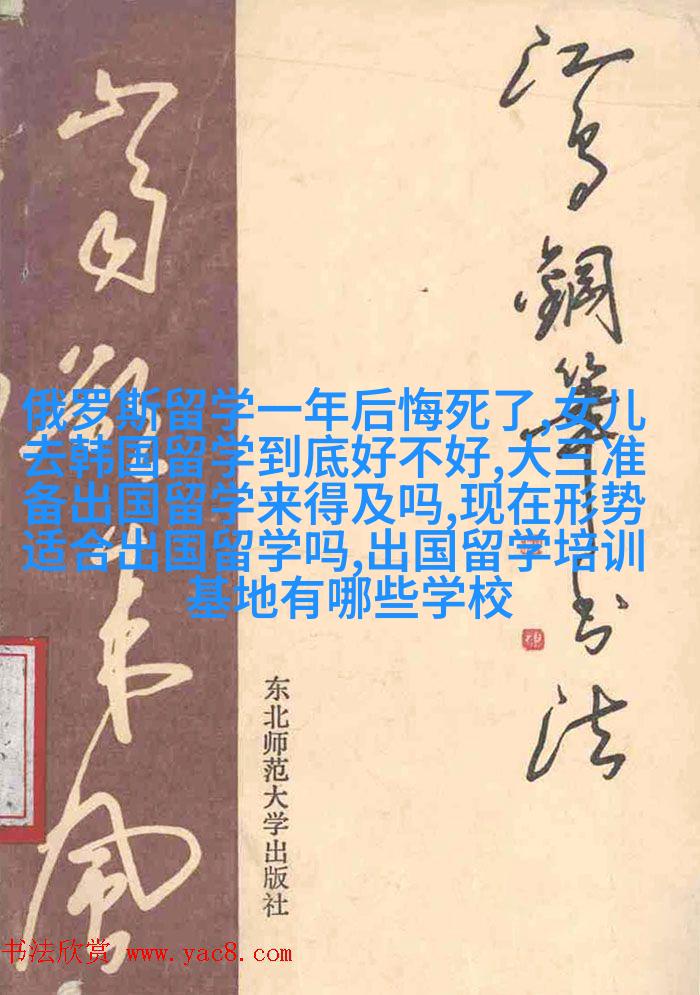 江鸟鋼筆书法
俄罗斯留学一年后悔死了,女儿
去韩国留学到底好不好,大三准
备出国留学来得及吗,现在形势
适合出国留学吗,出国留学培训
基地有哪些学校
东北师范大学出版社
书法欣赏 www.yac8.com